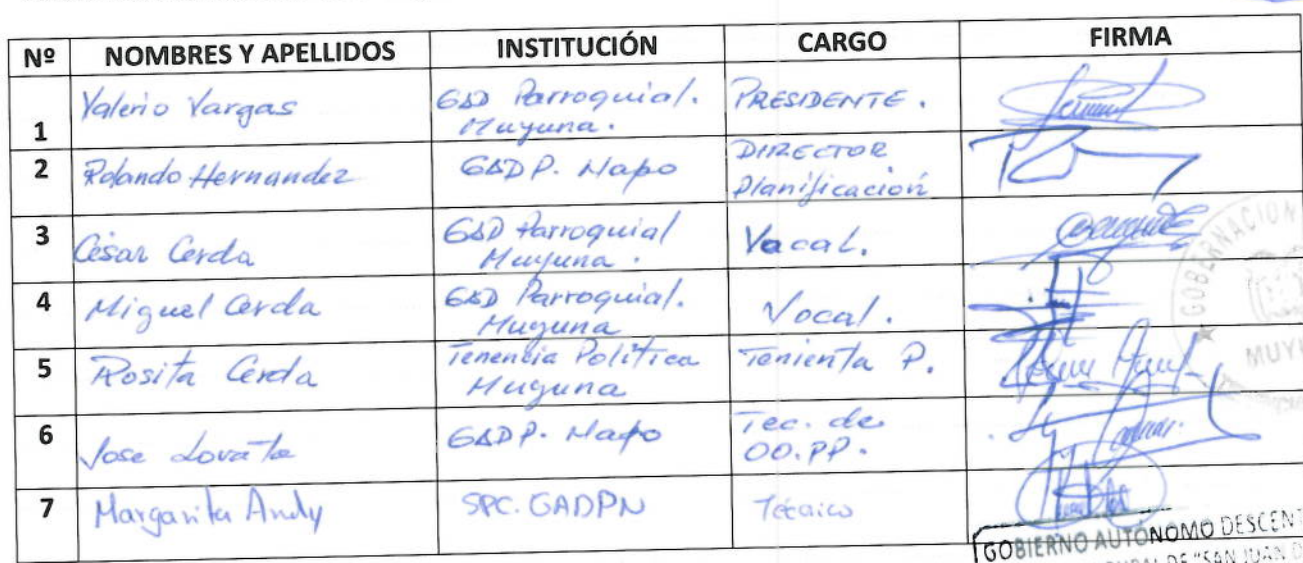 Nº NOMBRES Y APELLIDOS INSTITUCIÓN CARGO FIRMA
1 Valerio Vargas GAD Parroquial. Muyuna. PRESIDENTE.
2 Rolando Hernandez GADP. Napo DIRECTOR Planificación
3 César Cerda GAD Parroquial Muyuna. Vocal.
4 Miguel Cerda GAD Parroquial. Muyuna Vocal.
5 Rosita Cerda Tenencia Política Muyuna Tenienta P.
6 Jose Lovato GADP. Napo Tec. de OO.PP.
7 Margarita Andy SPC. GADPN Técnico
GOBIERNO AUTÓNOMO DESCENT
RURAL DE "SAN JUAN D